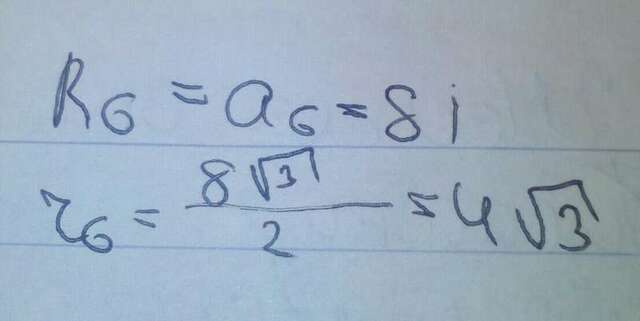 R₆ = a₆ = 8 ;
r₆ = 8√3 / 2 = 4√3